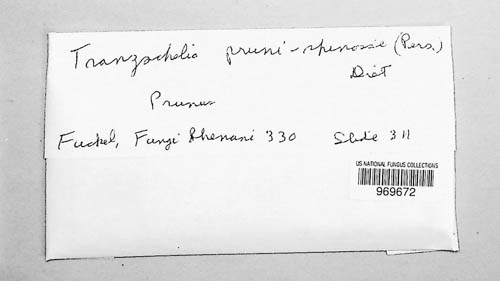 Tranzschelia pruni-spinosae (Pers.)
Diet
Prunus
Fuckel, Fungi Rhenani 330 Slide 311
US NATIONAL FUNGUS COLLECTIONS
969672